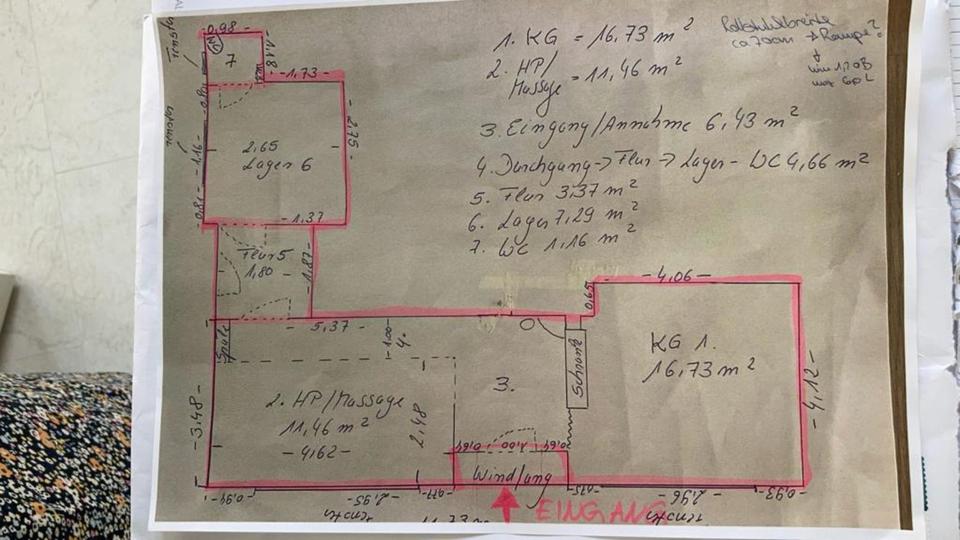 1. KG = 16,73 m²
2. HP/
Massage = 11,46 m²
3. Eingang/Annahme 6,43 m²
4. Durchgang -> Flur -> Lager - WC 4,66 m²
5. Flur 3,37 m²
6. Lager 7,29 m²
7. WC 1,16 m²
Rollstuhlbreite
ca 70cm -> Rampe?
0,98
7
1,18
-1,73-
-2,75-
2,65
Lager 6
-1,16-
-0,81-
-1,37
Flur 5
1,80
-1,87-
Spüle
5,37
-1,00-
4.
3.
Schrank
0,65
-4,06-
KG 1.
16,73 m²
-4,12-
-3,48-
2. HP/Massage
11,46 m²
-4,62-
2,48
0,64
1,00
0,64
Windfang
-0,94-
-2,95-
-0,77-
-0,75-
-2,96-
-0,93-
Fenster
Fenster
EINGANG